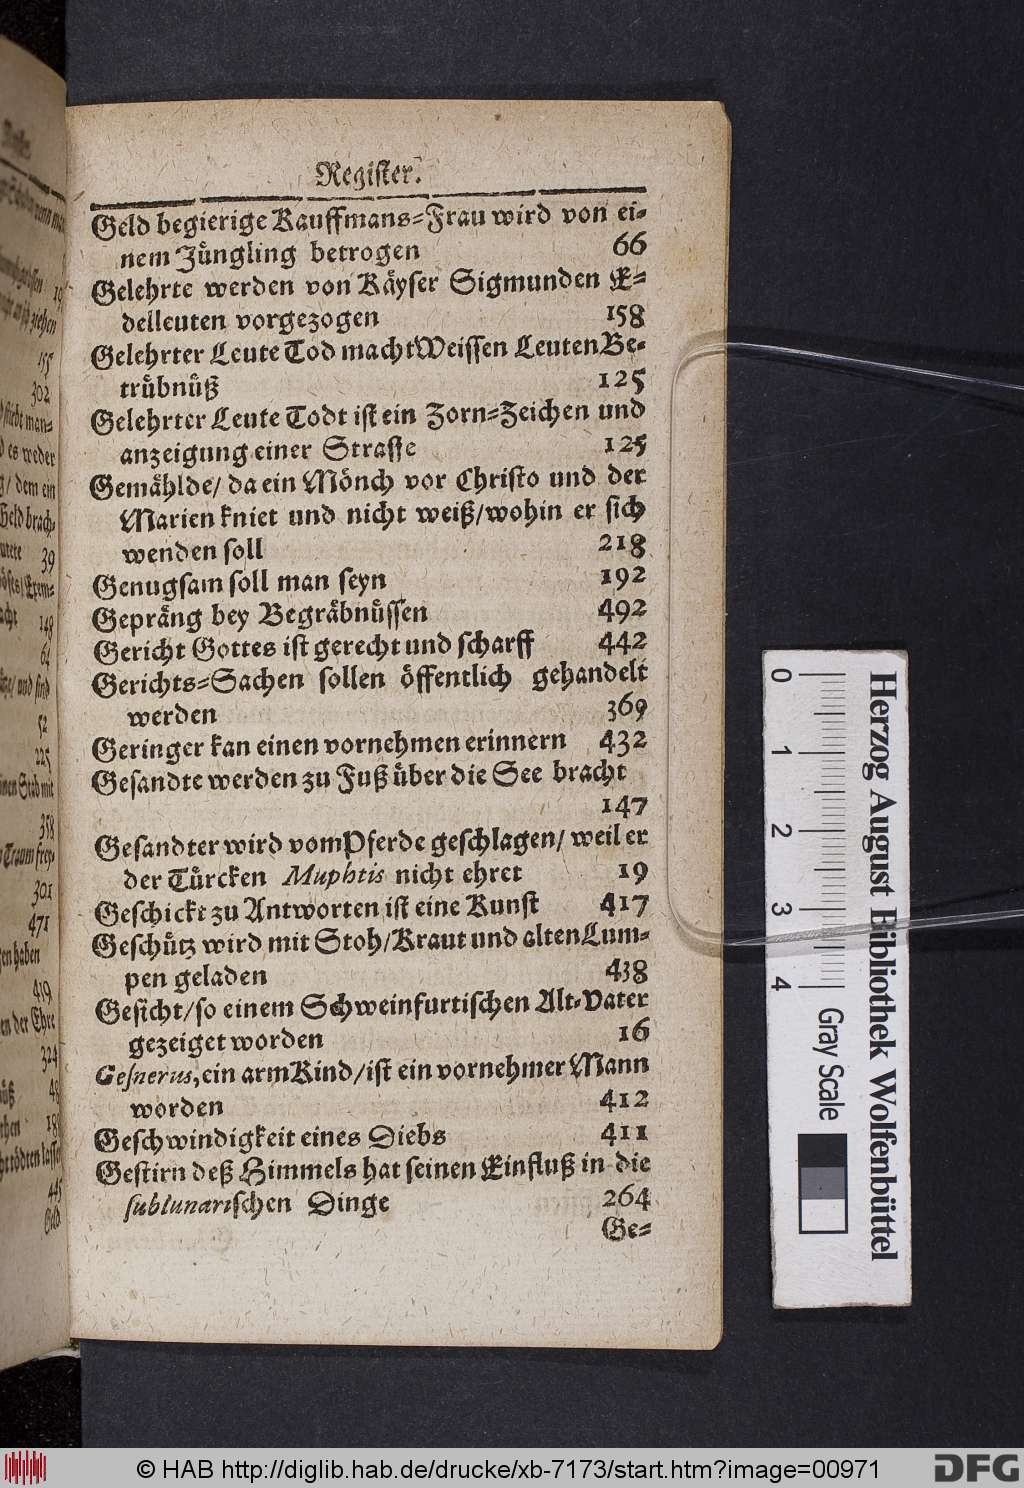 Register.
Geld begierige Kauffmans=Frau wird von ei=
nem Jüngling betrogen 66
Gelehrte werden von Käyser Sigmunden E=
delleuten vorgezogen 158
Gelehrter Leute Tod macht Weissen Leuten Be=
trübnüß 125
Gelehrter Leute Todt ist ein Zorn=Zeichen und
anzeigung einer Straffe 125
Gemählde/ da ein Mönch vor Christo und der
Marien kniet und nicht weiß/wohin er sich
wenden soll 218
Genugsam soll man seyn 192
Gepräng bey Begräbnüssen 492
Gericht Gottes ist gerecht und scharff 442
Gerichts=Sachen sollen öffentlich gehandelt
werden 369
Geringer kan einen vornehmen erinnern 432
Gesandte werden zu Fuß über die See bracht
147
Gesandter wird vom Pferde geschlagen/ weil er
der Türcken Muphtis nicht ehret 19
Geschickt zu Antworten ist eine Kunst 417
Geschütz wird mit Stoh/Kraut und alten Lum=
pen geladen 438
Gesicht/so einem Schweinfurtischen Alt=Vater
gezeiget worden 16
Gesnerus, ein arm Kind/ist ein vornehmer Mann
worden 412
Geschwindigkeit eines Diebs 411
Gestirn deß Himmels hat seinen Einfluß in die
sublunarischen Dinge 264
Ge=
ziehen
155
302
man=
es weder
/ dem ein
Geld brach=
39
148
64
und sind
52
225
Stab mit
358
Traum frey=
301
471
haben
459
der Ehre
324
48
188
tödten lasse
445
Geld
0 1 2 3 4
Gray Scale
Herzog August Bibliothek Wolfenbüttel
© HAB http://diglib.hab.de/drucke/xb-7173/start.htm?image=00971
DFG